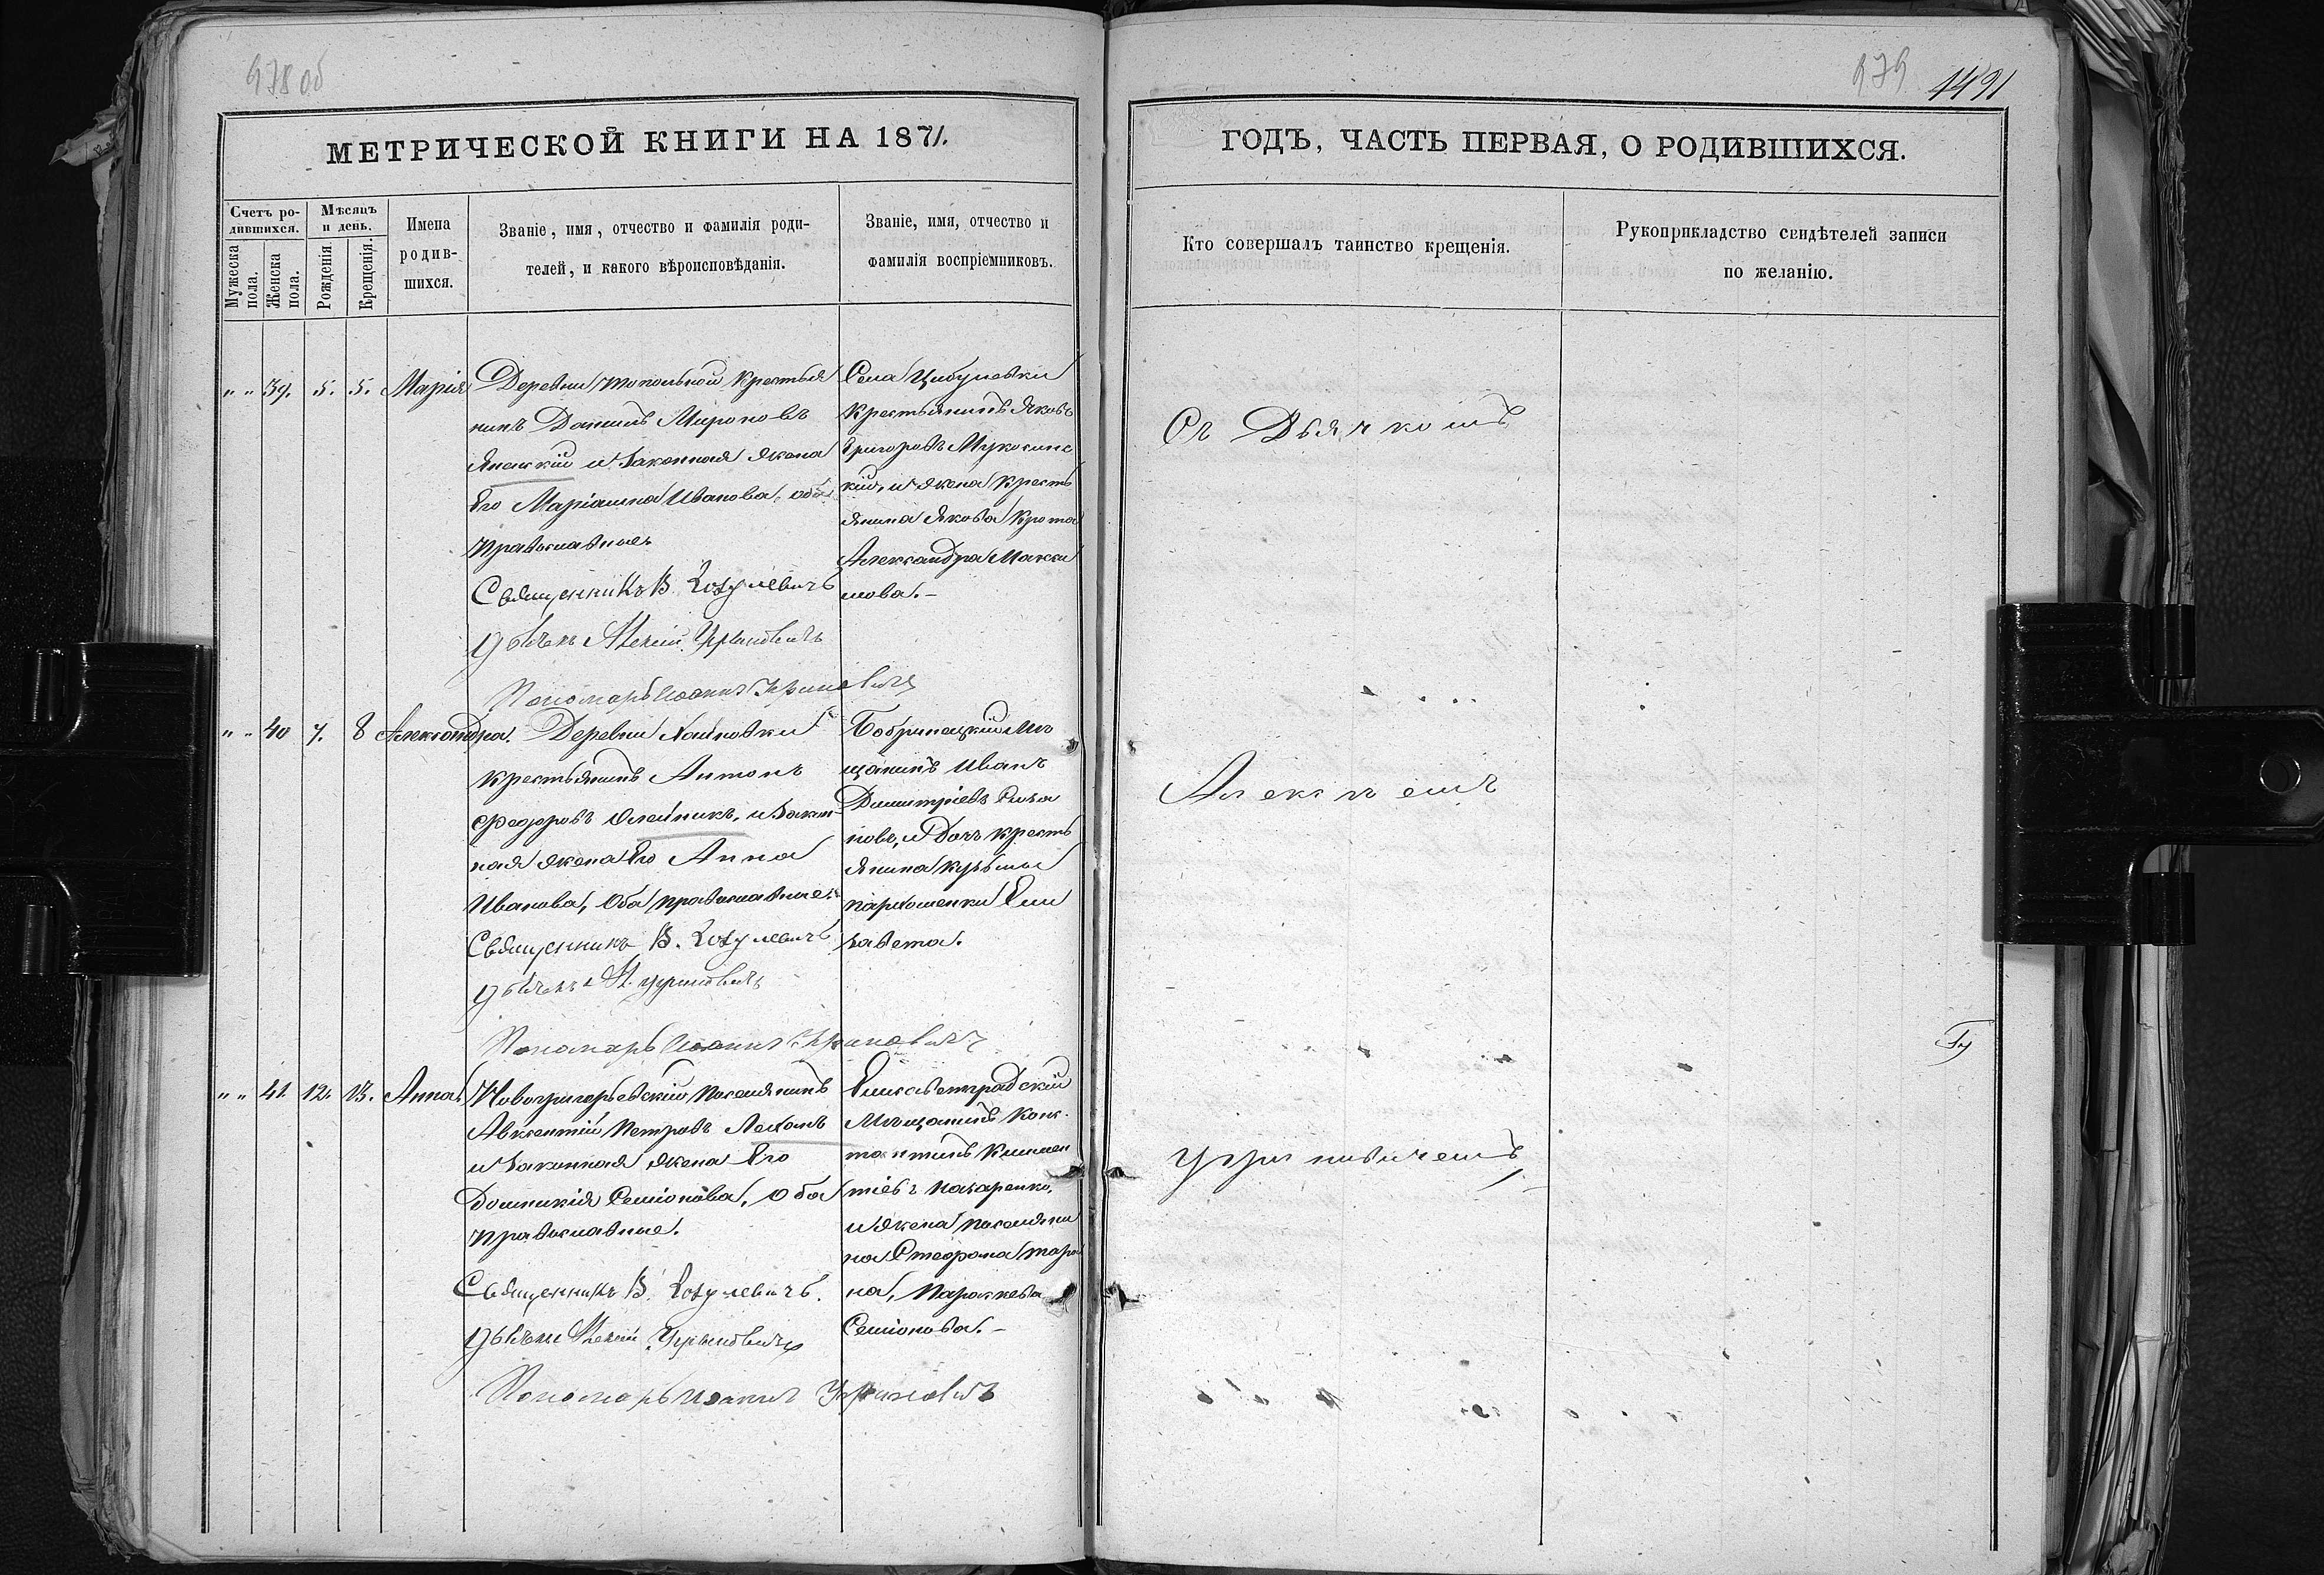 978об
979
1491
МЕТРИЧЕСКОЙ КНИГИ НА 1871.
ГОДЪ, ЧАСТЬ ПЕРВАЯ, О РОДИВШИХСЯ.
Счетъ родившихся.
Мужеска пола.
Женска пола.
Мѣсяцъ и день.
Рожденія.
Крещенія.
Имена родившихся.
Званіе, имя, отчество и фамилія роди-
телей, и какого вѣроисповѣданія.
Званіе, имя, отчество и
фамилія воспріемниковъ.
Кто совершалъ таинство крещенія.
Рукоприкладство свидѣтелей записи
по желанію.
" " 39. 5. 5. Марія
Деревни Топольной Крестья
нинъ Данилъ Мироновъ
и Законная Жена
Его Маріанна Иванова, оба
Православные.
Священникъ В. Козулевичъ
Дьячекъ Алексій Угриновичъ
Пономарь Іоаннъ Угриновичъ
Села Цыбулевки
Крестьянинъ Яковъ
Григоровъ
кій, и жена Кресть
янина Якова Крота
Александра Макси
мова.-
Съ Дьячкомъ
" " 40 7. 8 Александра.
Деревни
Крестьянинъ Антонъ
Федоровъ Олейникъ, и Закон-
ная жена Его Анна
Иванова, Оба православные.
Священникъ В. Козулевичъ
Дьячекъ А. Угриновичъ
Пономарь Іоаннъ Угриновичъ
Бобринецкій Мѣ
щанинъ Иванъ
Димитріевъ
новъ, и дочь кресть
янина Кузьмы
Пархоменки Ели
завета.
Алексѣемъ
" " 41. 12. 13. Анна.
Новогригорьевскій Поселянинъ
Авксентій Петровъ
и Законная жена Его
Домникія Семіонова, Оба
Православные.
Священникъ В. Козулевичъ.
Дьячекъ Алексій Угриновичъ
Пономарь Іоаннъ Угриновичъ
Елисаветградскій
Мѣщанинъ Конс-
тантинъ Климен
тіевъ Назаренко,
и жена поселяни
на
на, Параскева
Семіонова.-
Угриновичемъ